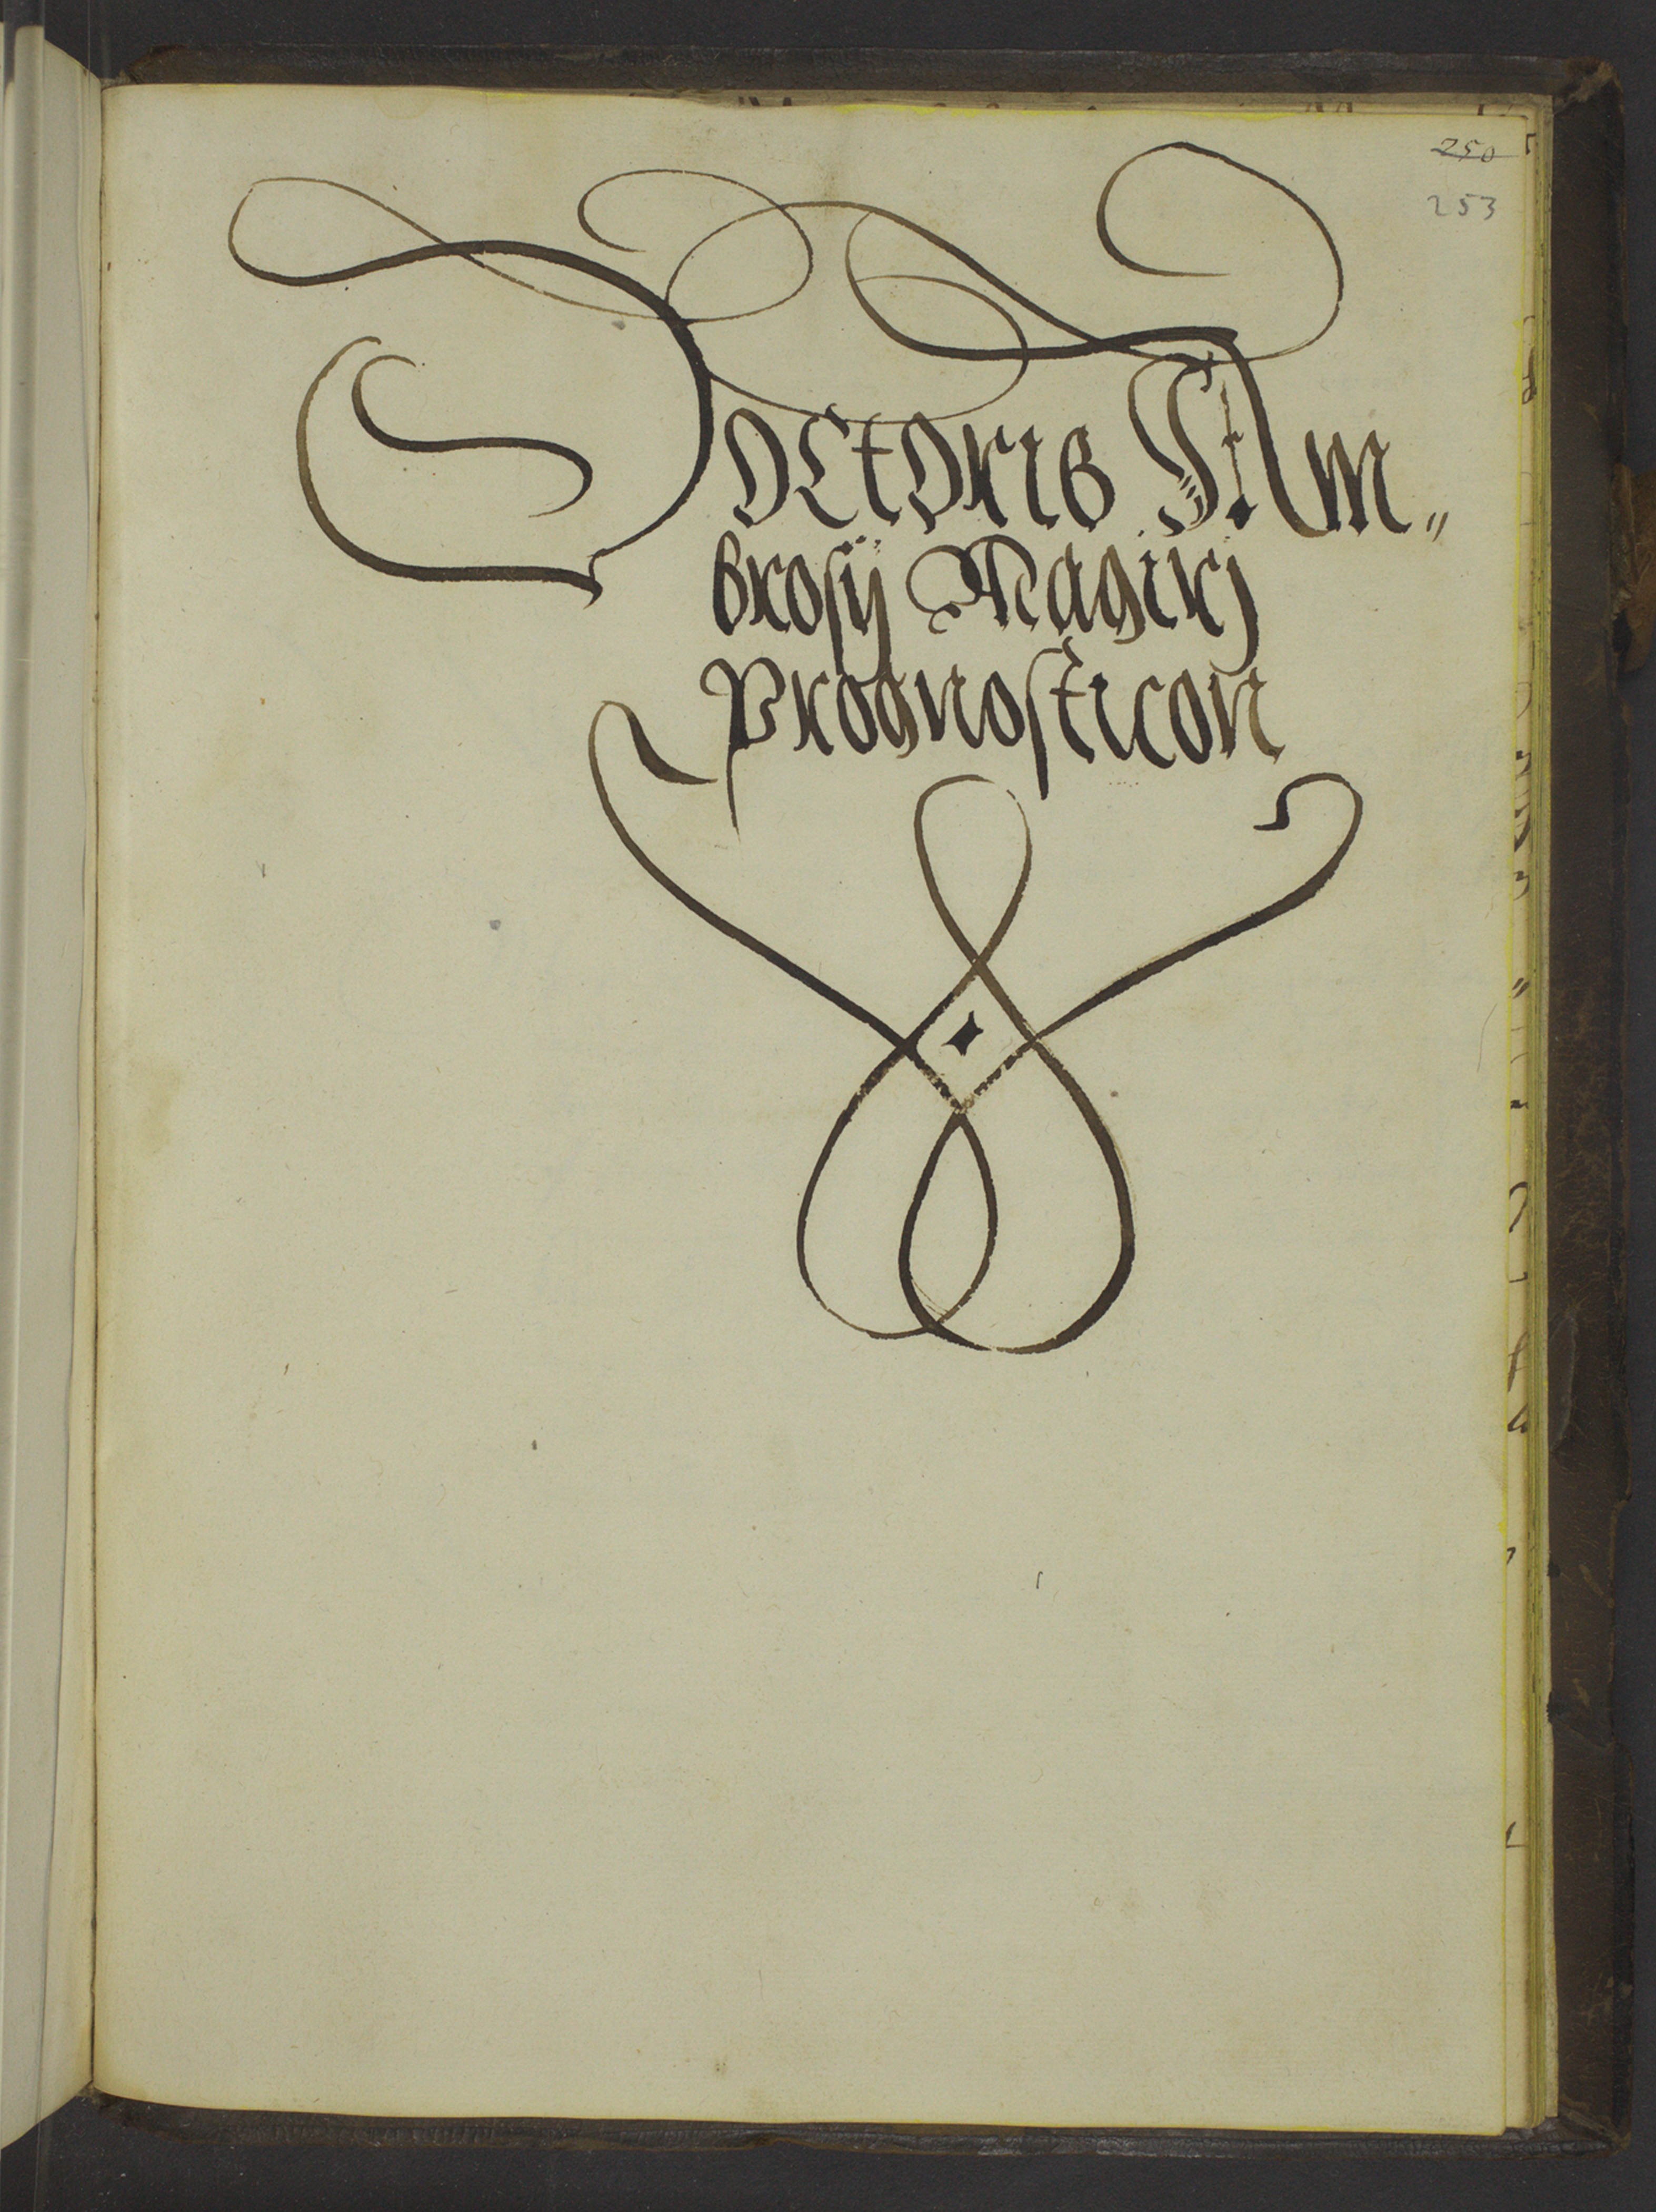 250
253
Doctoris Am„
brosÿ Magirj
Prognosticon